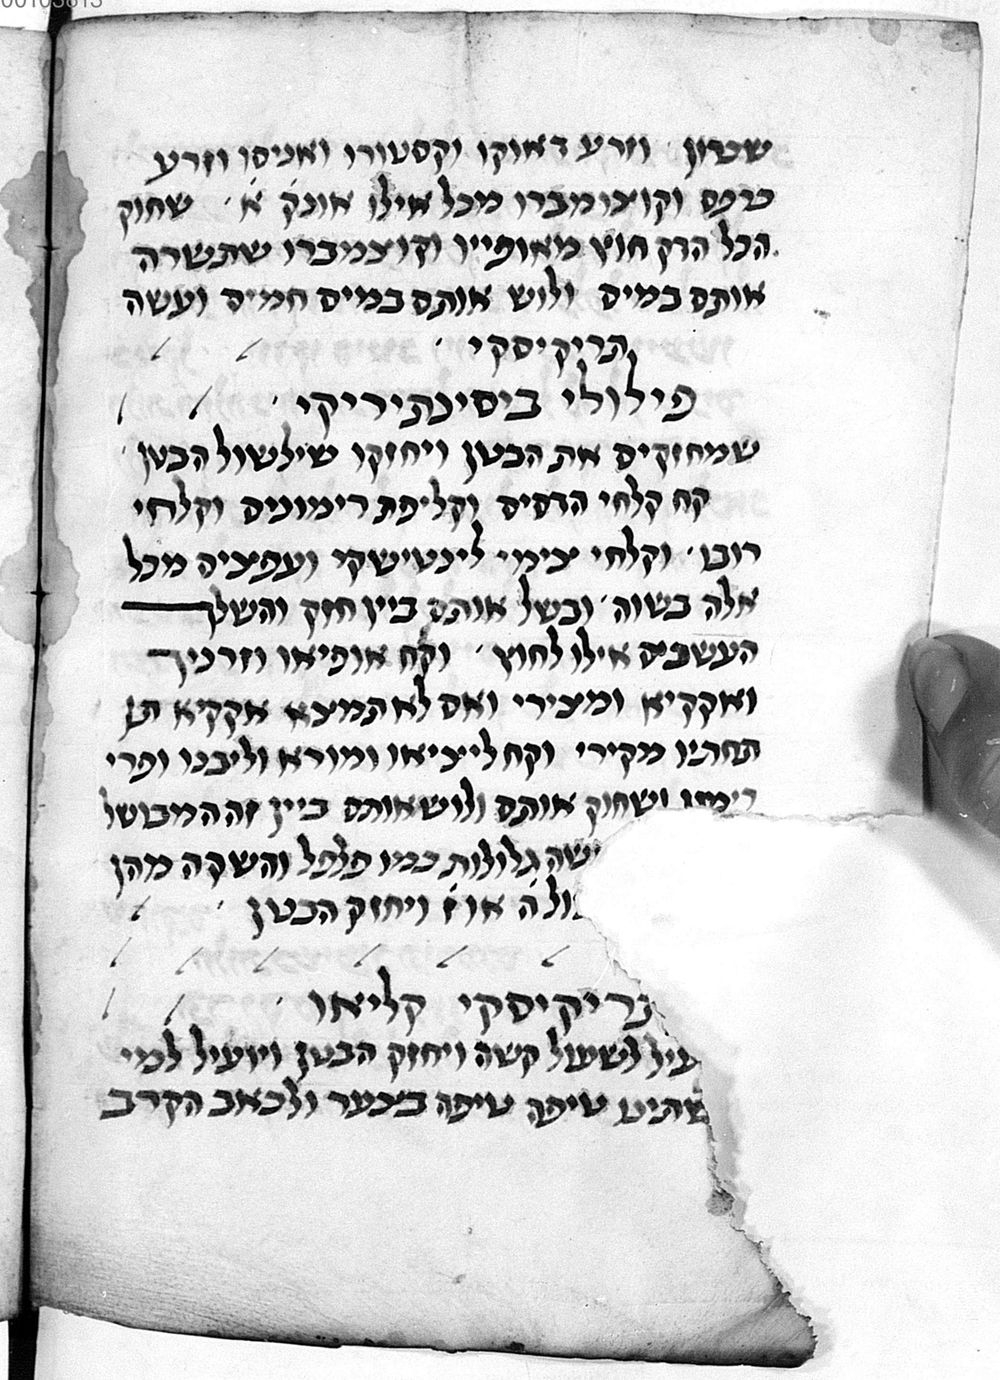 וזרע דאוקו וקסטורו ואניסו וזרע
כרפס וקוצומברו מכל אילו אונק א שחוק
הכל הדק חוץ מאופייו וקוצמברו שתשרה
אותם במים ולוש אותם במים חמים ועשה
תריקיסקי
פילולי ביסינתיריקי
שמחזקים את הבטן ויחזקו שילשול הבטן
קח קלחי הדסים וקליפת רימונים וקלחי
רובו וקלחי צימי לינטישקי ועפציה מכל
אלה בשוה ובשל אותם ביין חזק והשלך
העשבים אילו לחוץ וקח אופיאו וזרניך
ואקקיא ומצירי ואם לא תמצא אקקיא תן
תחתיו מקירי וקח לייציאו ומורא וליבנו ופרי
ושחוק אותם ולוש אותם ביין זה המבושל
גלולות כמו פלפל והשקה מהן
ה או ז ויחזק הבטן
טריקיסקי קליאו
לשעול קשה ויחזק הבטן ויועיל למי
שתיט טיפה טיפה בצער ולכאב הקרב